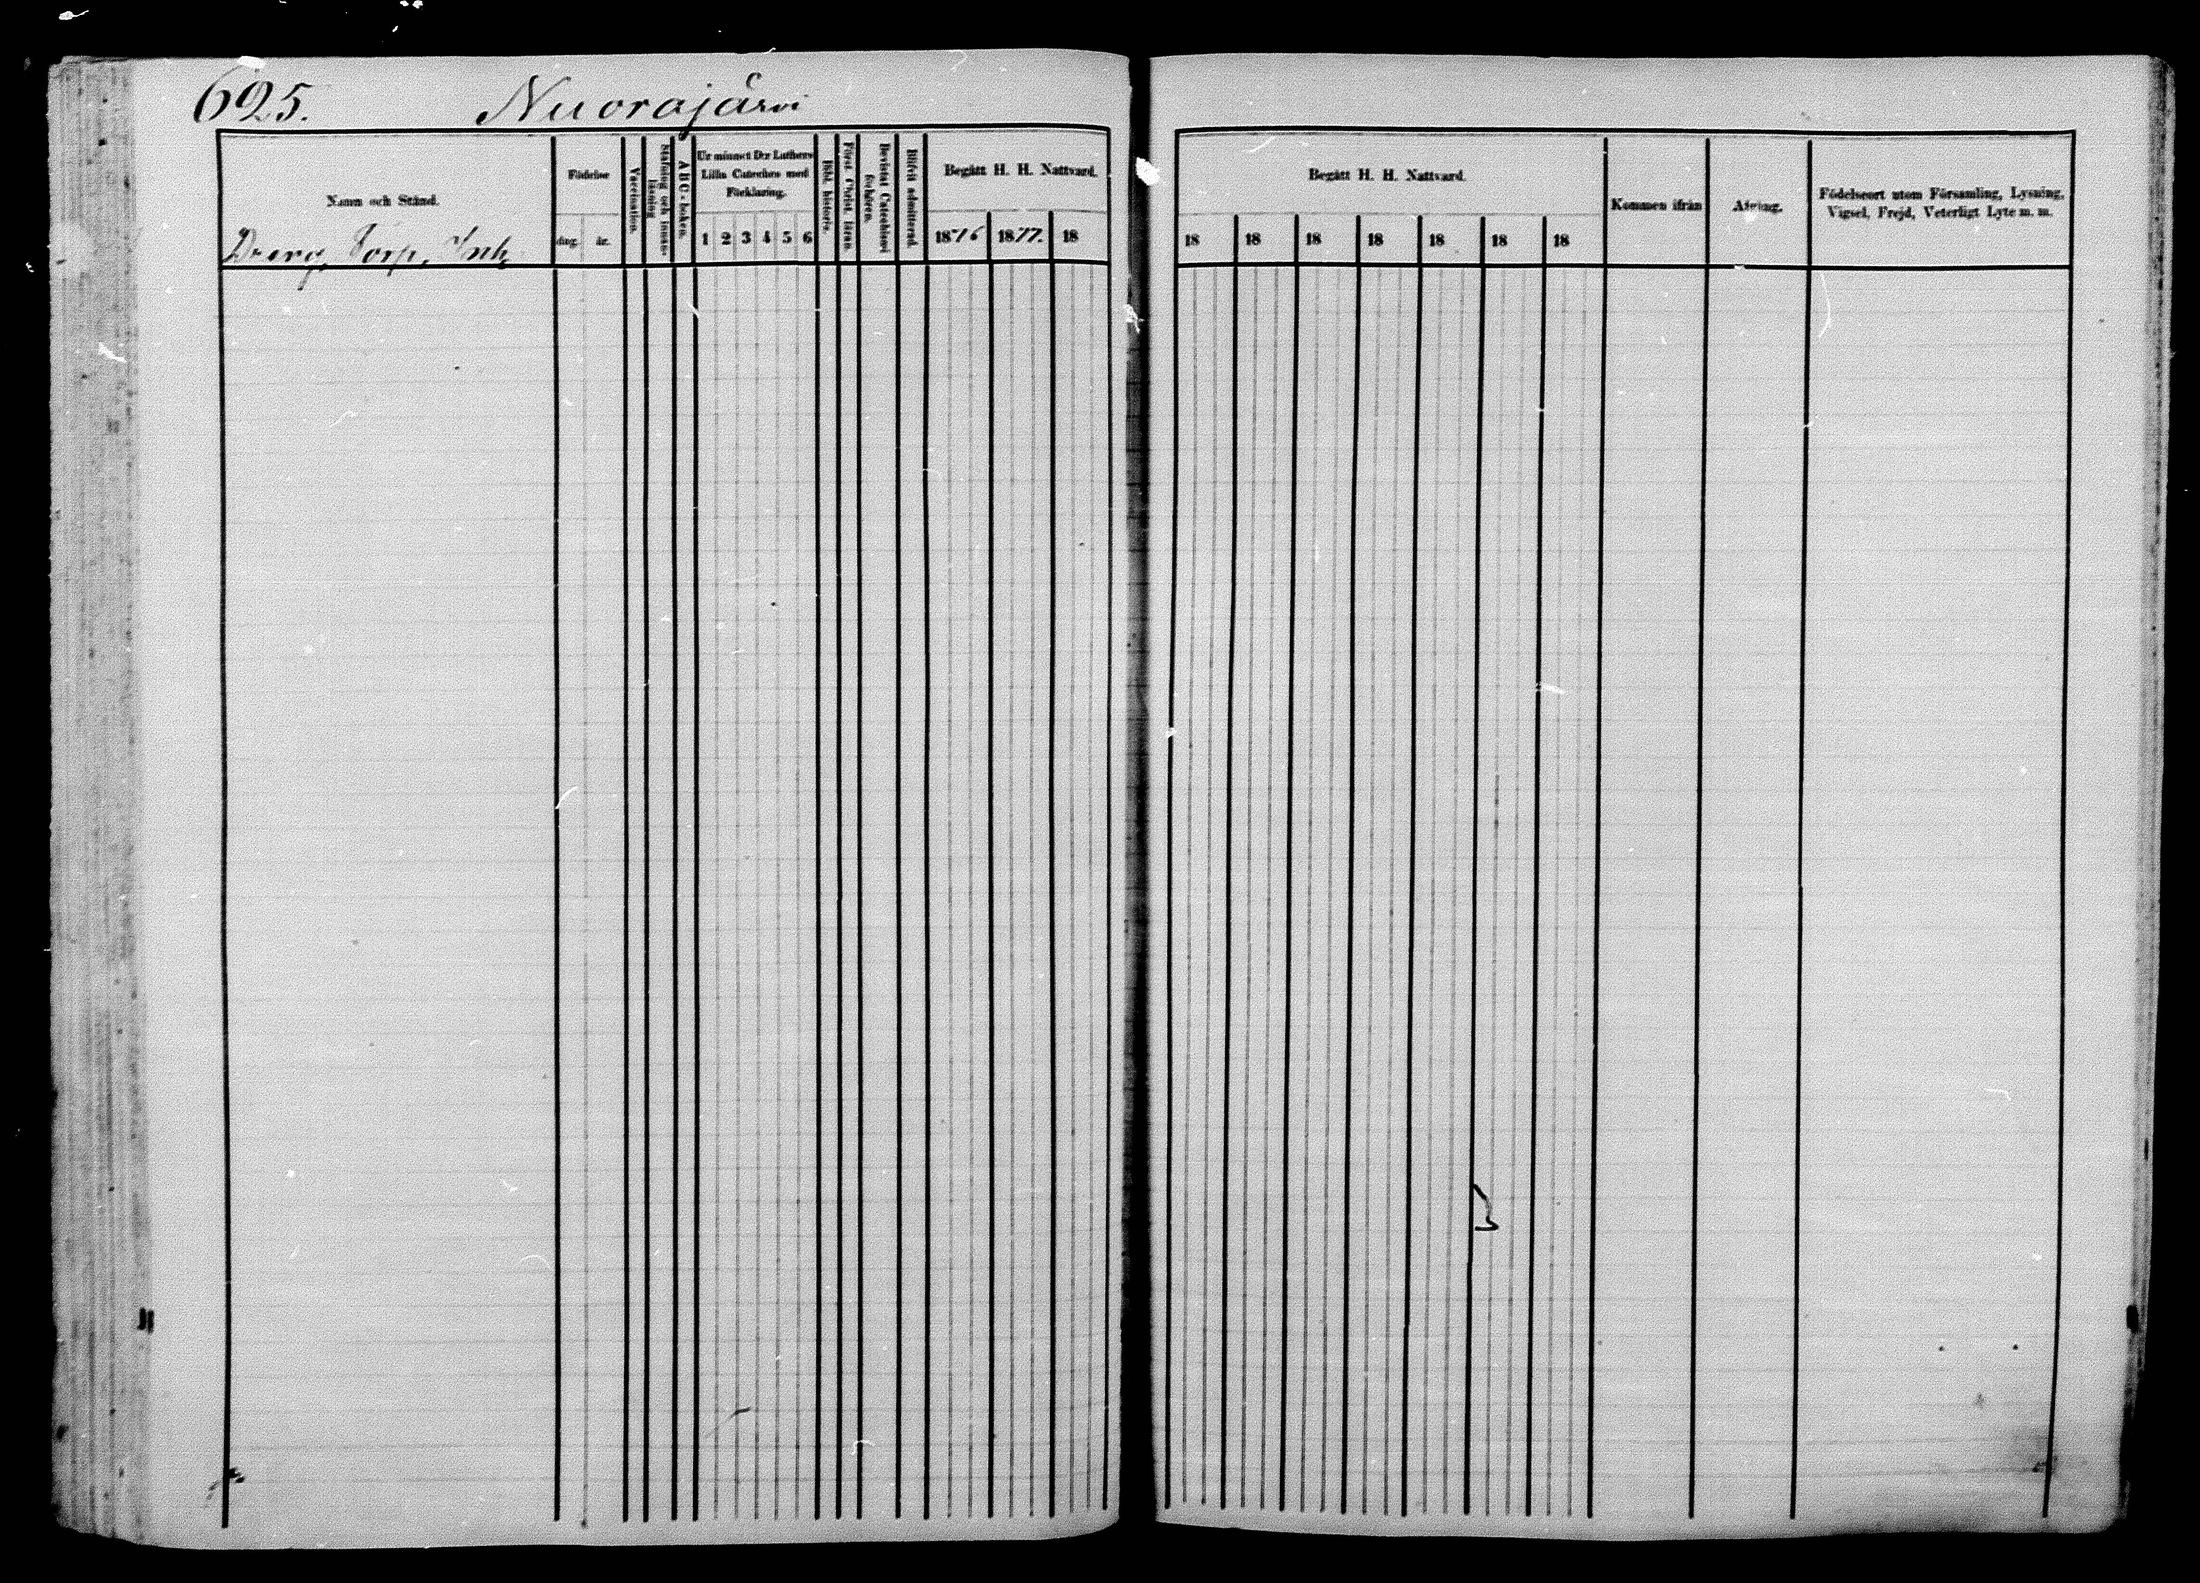 625. Nuorajärvi
Namn och Stånd.
Dreng, Torp, Inh,
Födelse
dag. år.
Vaccination.
Stafning och innan-
läsning
A B C-boken.
Ur minnet D:r Luthers
Lilla Cateches med
Förklaring.
1 2 3 4 5 6
Bibl. historie.
Först. Christ. läran.
Bevistat Catechismi
förhören.
Blifvit admitterad.
Begått H. H. Nattvard.
1876 1877. 18
Begått H. H. Nattvard.
18 18 18 18 18 18 18
Kommen ifrån
Afgång.
Födelseort utom Församling, Lysning,
Vigsel, Frejd, Veterligt Lyte m. m.